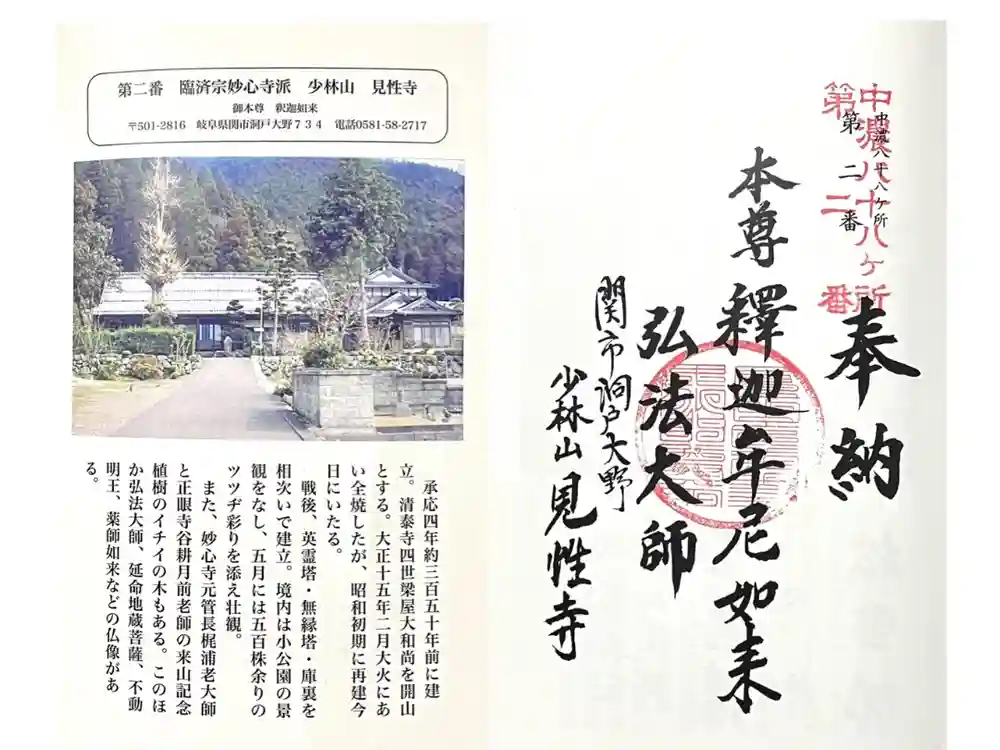 第二番　臨済宗妙心寺派　少林山　見性寺
御本尊　釈迦如来
〒501-2816　岐阜県関市洞戸大野７３４　電話0581-58-2717
承応四年約三百五十年前に建
立。清泰寺四世梁屋大和尚を開山
とする。大正十五年二月大火にあ
い全焼したが、昭和初期に再建今
日にいたる。
戦後、英霊塔・無縁塔・庫裏を
相次いで建立。境内は小公園の景
観をなし、五月には五百株余りの
ツツヂ彩りを添え壮観。
また、妙心寺元管長梶浦老大師
と正眼寺谷耕月前老師の来山記念
植樹のイチイの木もある。このほ
か弘法大師、延命地蔵菩薩、不動
明王、薬師如来などの仏像があ
る。
中濃八十八ケ所
第二番
中濃八十八ヶ所
第二番
奉納
本尊釋迦牟尼如来
弘法大師
関市洞戸大野
少林山見性寺